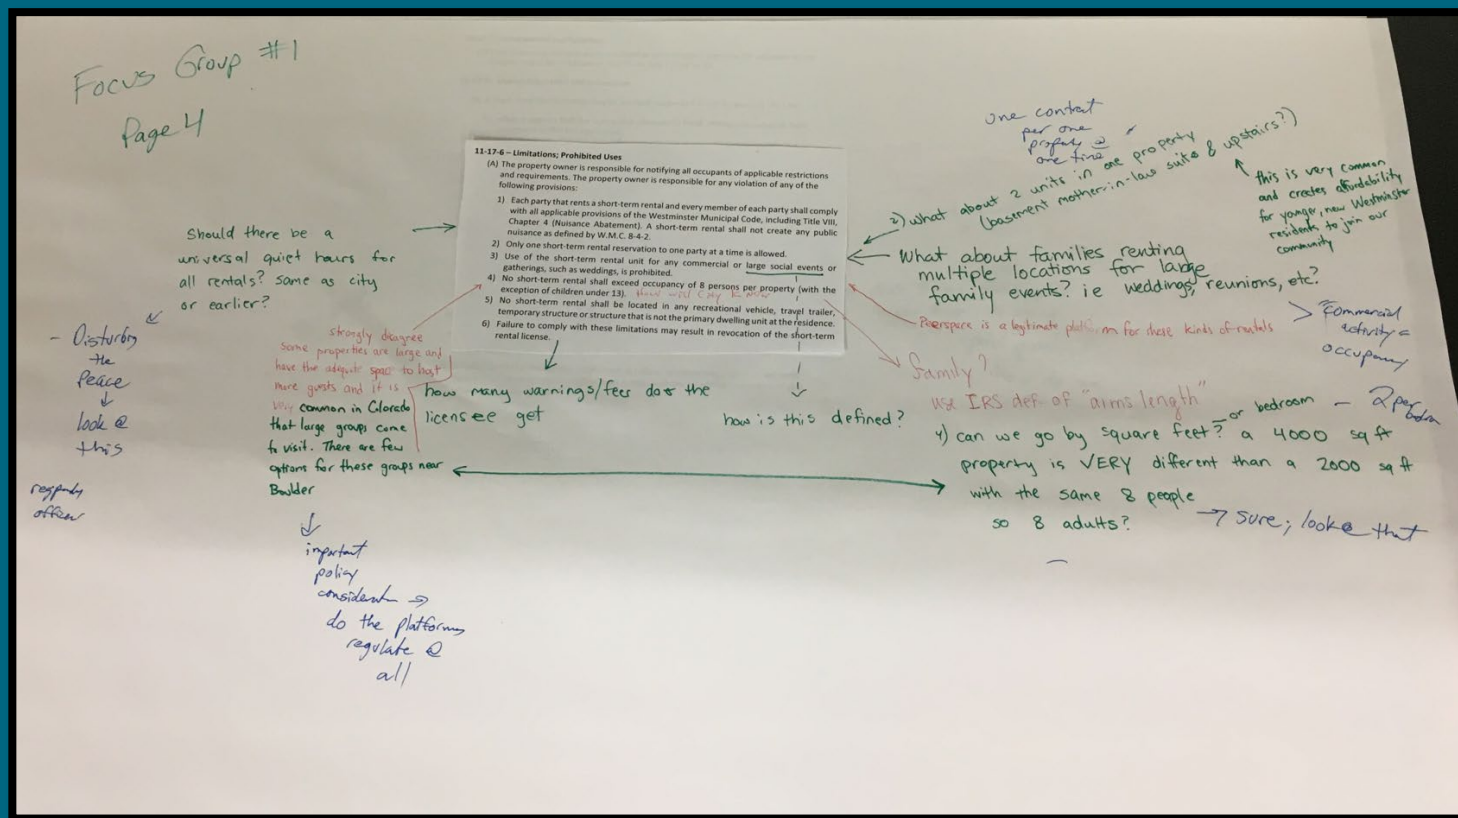 Focus Group #1
Page 4
11-17-6 – Limitations; Prohibited Uses
(A) The property owner is responsible for notifying all occupants of applicable restrictions
and requirements. The property owner is responsible for any violation of any of the
following provisions:
1) Each party that rents a short-term rental and every member of each party shall comply
with all applicable provisions of the Westminster Municipal Code, including Title VIII,
Chapter 4 (Nuisance Abatement). A short-term rental shall not create any public
nuisance as defined by W.M.C. 8-4-2.
2) Only one short-term rental reservation to one party at a time is allowed.
3) Use of the short-term rental unit for any commercial or large social events or
gatherings, such as weddings, is prohibited.
4) No short-term rental shall exceed occupancy of 8 persons per property (with the
exception of children under 13). How will City Know
5) No short-term rental shall be located in any recreational vehicle, travel trailer,
temporary structure or structure that is not the primary dwelling unit at the residence.
6) Failure to comply with these limitations may result in revocation of the short-term
rental license.
Should there be a
universal quiet hours for
all rentals? same as city
or earlier?
- Disturbing
the
Peace
look @
this
officer
strongly disagree
Some properties are large and
have the adequate space to host
more guests and it is
very common in Colorado
that large groups come
to visit. There are few
options for these groups near
Boulder
important
policy
do the platforms
regulate @
all
how many warnings/fees does the
licensee get
how is this defined?
One contract
per one
property @
one time
2) what about 2 units in one property
(basement mother-in-law suite & upstairs?)
this is very common
and creates affordability
for younger, new Westminster
residents to join our
community
What about families renting
multiple locations for large
family events? ie weddings, reunions, etc?
Peerspace is a legitimate platform for these kinds of rentals
> "commercial
activity =
occupancy
family?
use IRS def. of "arms length"
4) can we go by square feet? - or bedroom - 2 per bdrm
a 4000 sq ft
property is VERY different than a 2000 sq ft
with the same 8 people
so 8 adults? → sure; look @ that